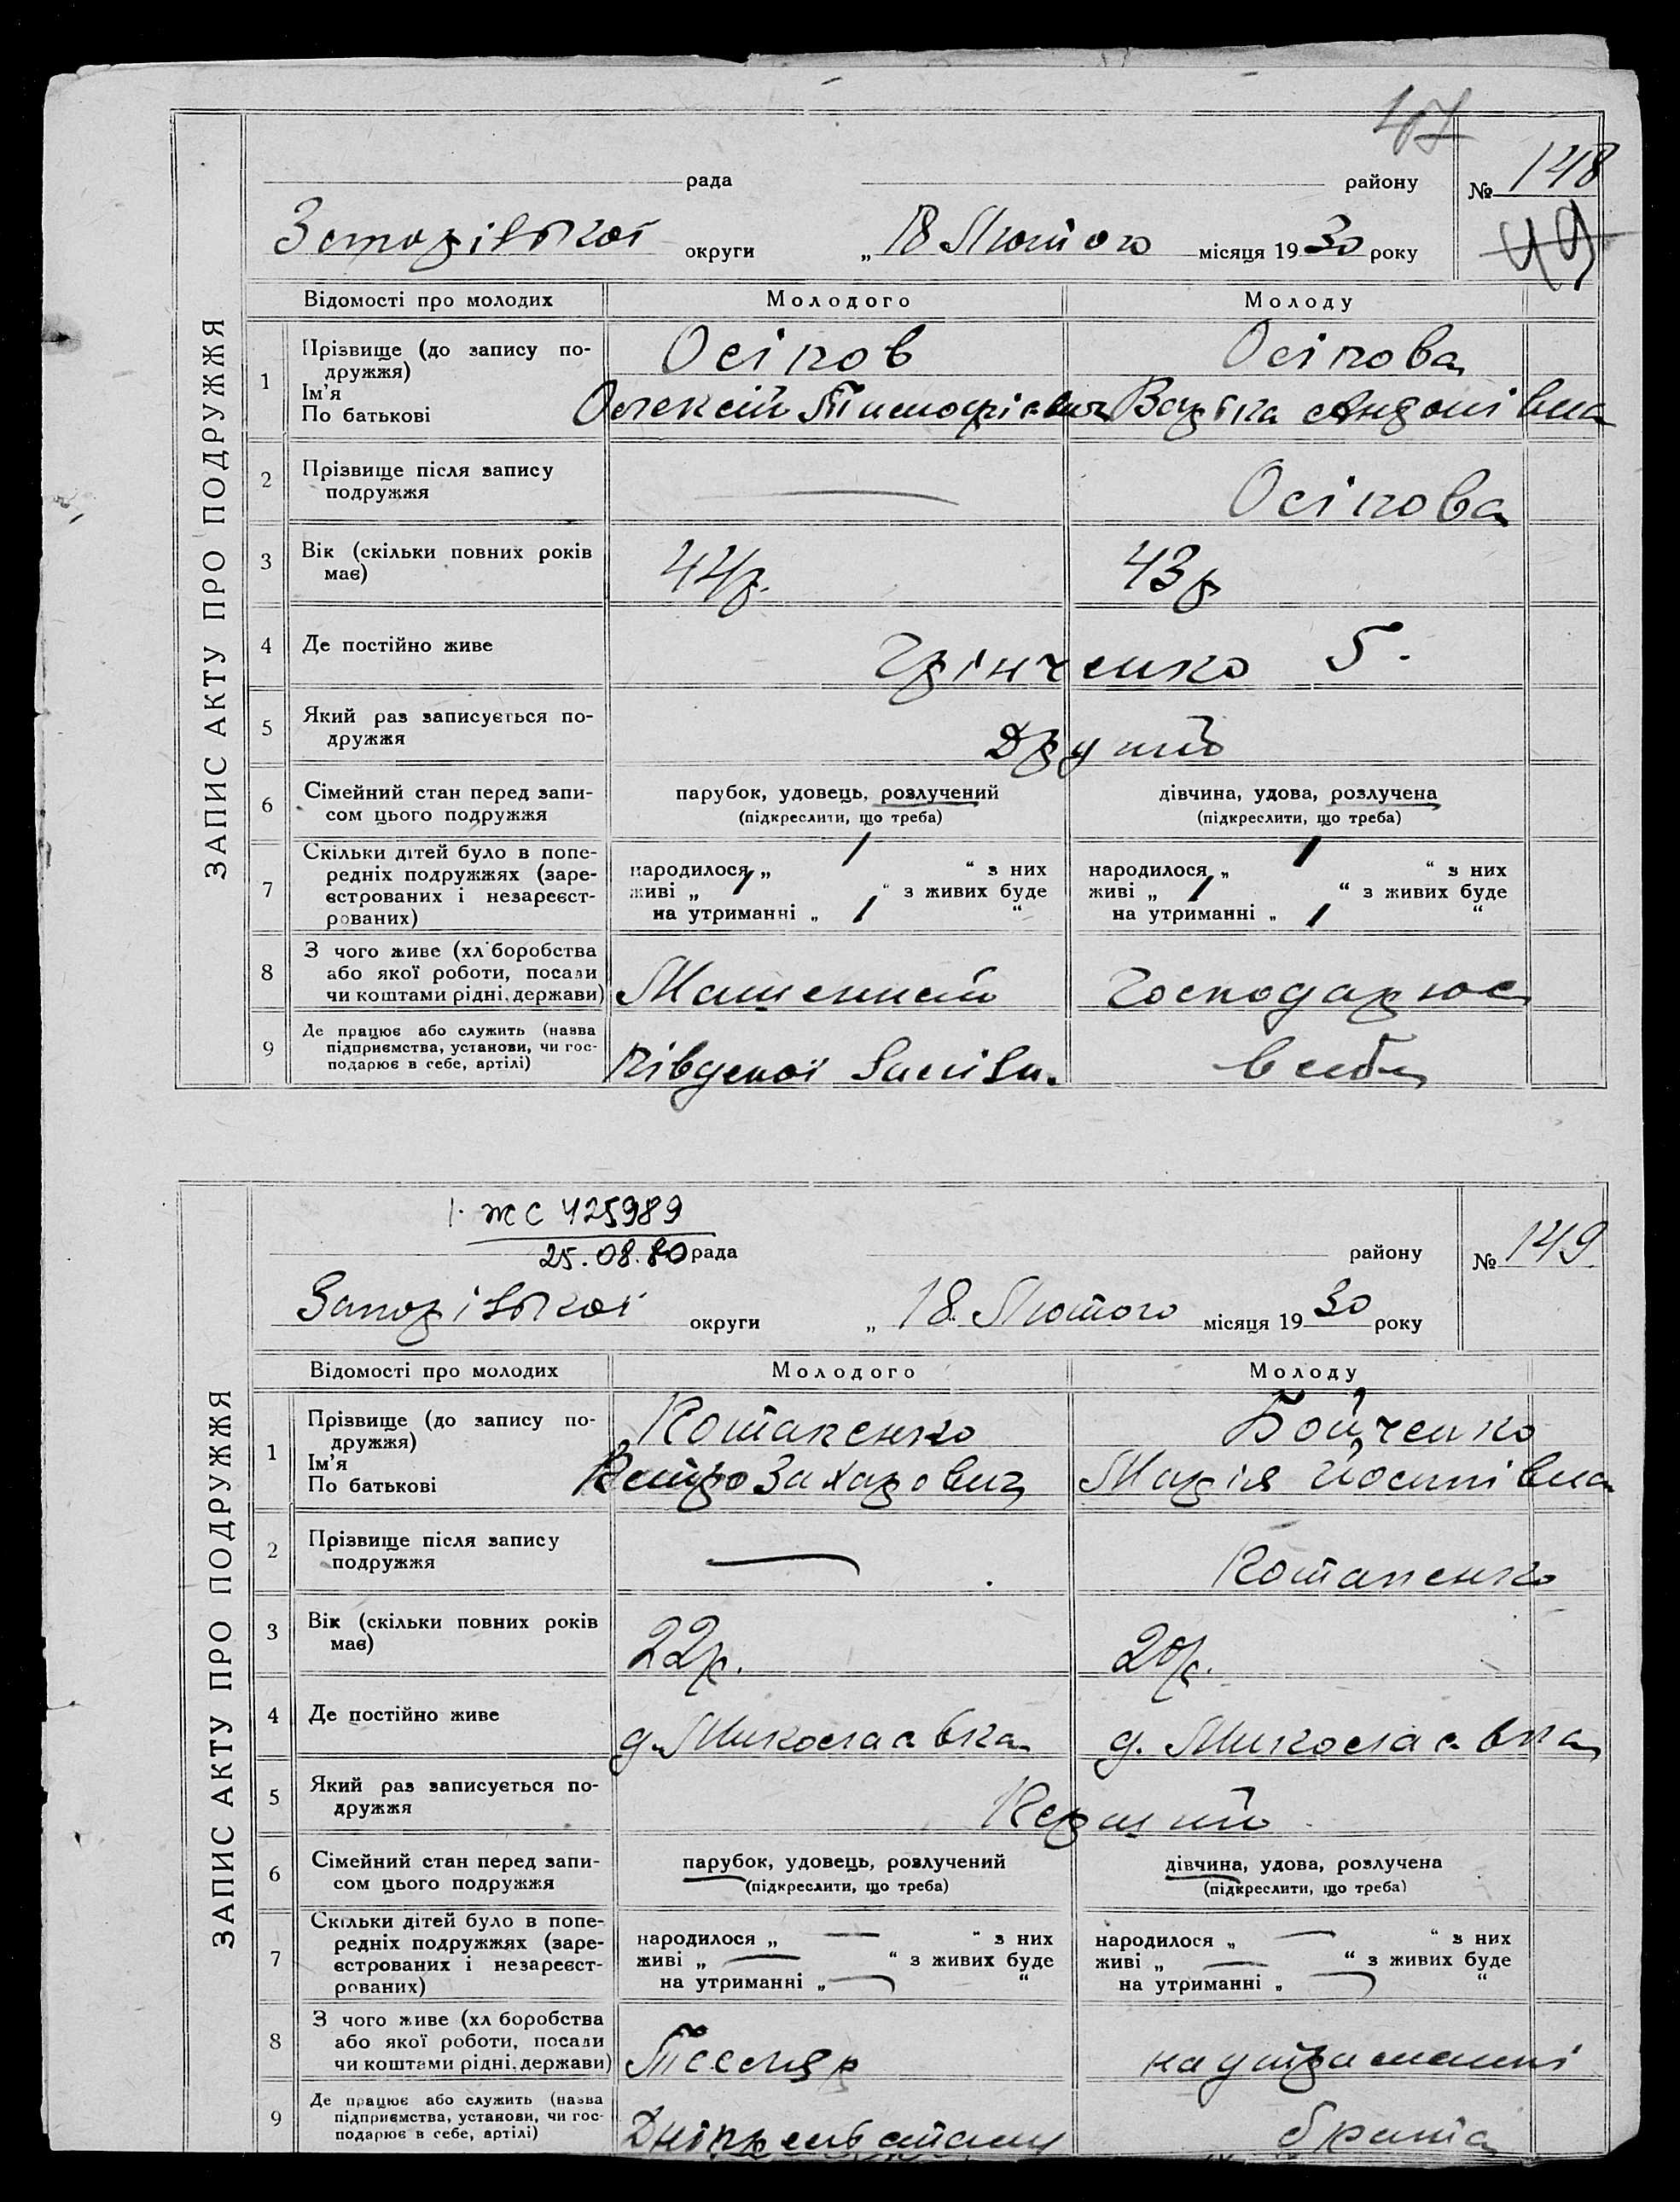 47
ЗАПИС АКТУ ПРО ПОДРУЖЖЯ
рада району № 148
округи „ 18 Лютого місяця 1930 року 49
Відомості про молодих Молодого Молоду
1 Прізвище (до запису по-
дружжя)
Ім'я
По батькові
Осіпов Осіпова
Олексій Тимофієвич Варька Андонівна
2 Прізвище після запису
подружжя
— Осіпова
3 Вік (скільки повних років
має)
44р. 43р
4 Де постійно живе
Грінченко 5.
5 Який раз записується по-
дружжя
Другий
6 Сімейний стан перед запи-
сом цього подружжя
парубок, удовець, розлучений дівчина, удова, розлучена
(підкреслити, що треба) (підкреслити, що треба)
7 Скільки дітей було в попе-
редніх подружжях (заре-
єстрованих і незареєст-
рованих)
народилося „ / “ з них народилося „ / “ з них
живі „ / “ з живих буде живі „ / “ з живих буде
на утриманні „ / “ на утриманні „ / “
8 З чого живе (хліборобства
або якої роботи, посади
чи коштами рідні, держави)
Господарює
9 Де працює або служить (назва
підприємства, установи, чи гос-
подарює в себе, артілі)
Південої в себе
ЗАПИС АКТУ ПРО ПОДРУЖЖЯ
1. ЖС 425989
25.08.80 рада району № 149
округи „ 18. Лютого місяця 1930 року
Відомості про молодих Молодого Молоду
1 Прізвище (до запису по-
дружжя)
Ім'я
По батькові
Потапенко Бойченко
Петро Захарович Марія Йосипівна
2 Прізвище після запису
подружжя
— Потапенко
3 Вік (скільки повних років
має)
22р. 20р.
4 Де постійно живе
д. Миколаєвка д. Миколаєвка
5 Який раз записується по-
дружжя
Перший
6 Сімейний стан перед запи-
сом цього подружжя
парубок, удовець, розлучений дівчина, удова, розлучена
(підкреслити, що треба) (підкреслити, що треба)
7 Скільки дітей було в попе-
редніх подружжях (заре-
єстрованих і незареєст-
рованих)
народилося „ — “ з них народилося „ — “ з них
живі „ — “ з живих буде живі „ — “ з живих буде
на утриманні „ — “ на утриманні „ — “
8 З чого живе (хліборобства
або якої роботи, посади
чи коштами рідні, держави)
Тесляр на утриманні
9 Де працює або служить (назва
підприємства, установи, чи гос-
подарює в себе, артілі)
брата